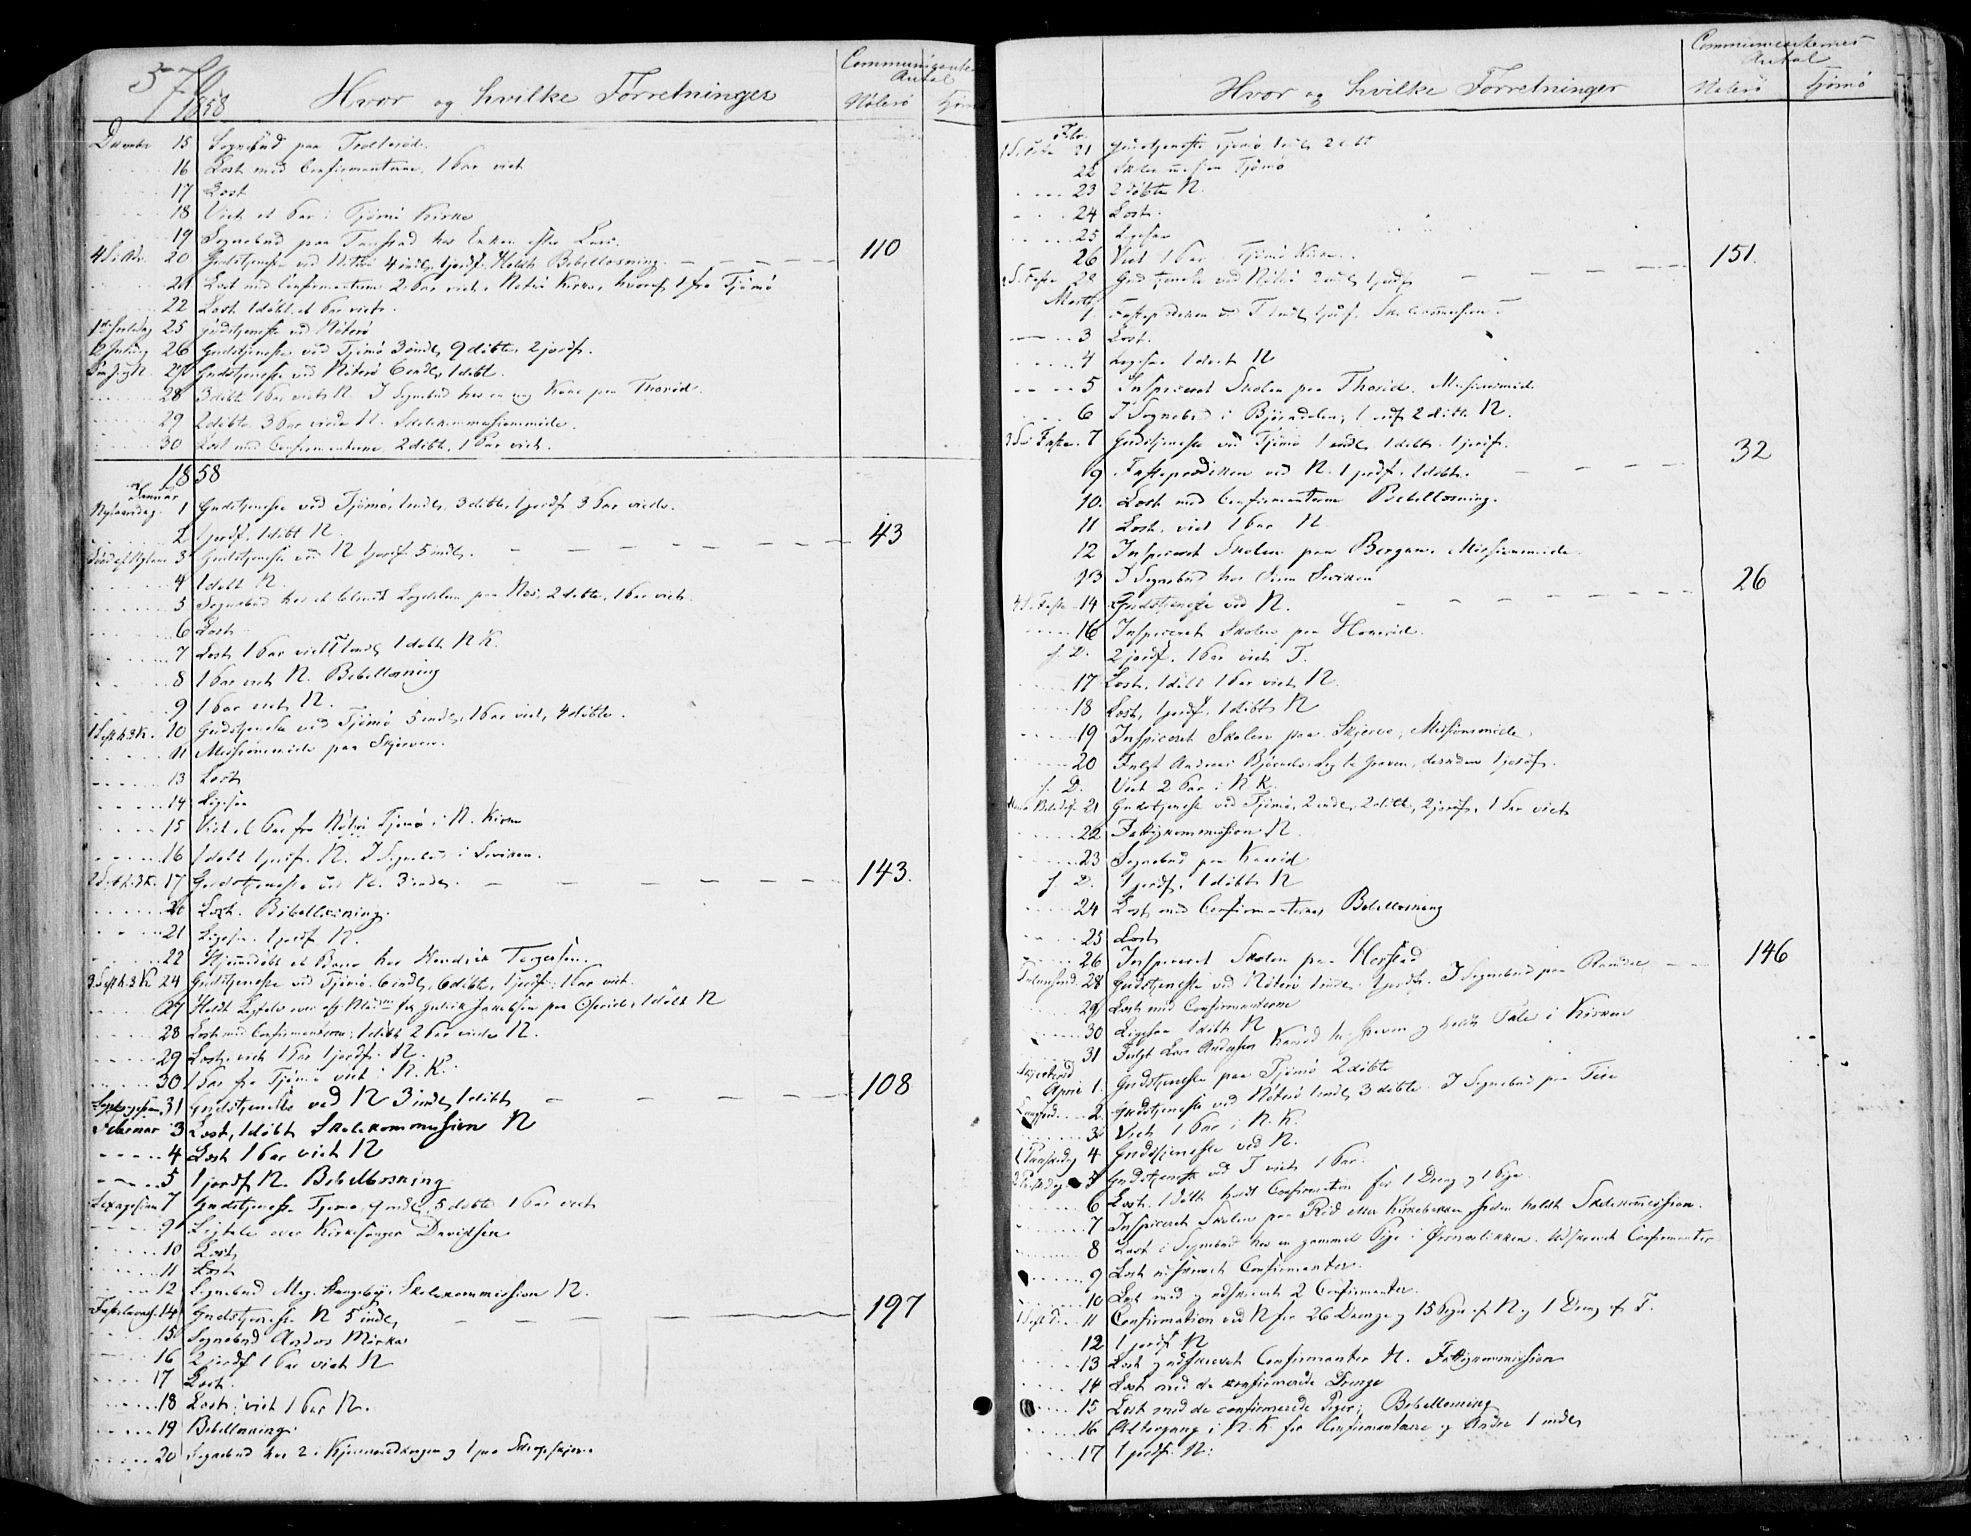 570
1858
Hvor og hvilke Forretninger
Communicanter Antal
Nøterø
December 15 Sognebud paa
16 Læst med Confirmanterne, 1 Par viet
17 Læst
18 Viet et Par i Tjømø Kirke
19 Sognebud paa hos Enken efter Lars.
4 S. i Adv. 20 Gudstjeneste ved Nøterø 4 indl. 1 jordf. Holdt Bibellæsning. 110
21 Læst med Confirmanterne 2 Par viet i Nøterø Kirke, hvoraf 1 fra Tjømø
22 Læst 1 døbt, et Par viet.
1ste Juledag 25 Gudstjeneste ved Nøterø
2 Juledag 26 Gudstjeneste ved Tjømø 3 indl. 9 døbte, 2 jordf.
27 Gudstjeneste ved Nøterø 6 indl. 1 døbt.
28 3 døbt 1 Par viet N. I Sognebud hos en ung Kone paa Thorød.
29 2 døbte, 3 Par viede N. Skolekommissionsmøde.
30 Læst med Confirmanterne 2 døbt, 1 Par viet.
1858
Januar
Nytaarsdag 1 Gudstjeneste ved Tjømø, 1 indl, 3 døbte, 1 jordf 3 Par viede.
2 1 jordf. 1 døbt N.
Sønd. ef. Nytaar 3 Gudstjeneste ved N 1 jordf. 5 indl. 43
4 1 døbt N.
5 Sognebud hos et Lægdslem paa Nes, 2 døbte, 1 Par viet.
6 Læst
7 Læst, 1 Par viet T 1 indl, 1 døbt N K.
8 1 Par viet N. Bibellæsning
9 1 Par viet N.
1 S. eft. h. 3 K. 10 Gudstjeneste ved Tjømø 5 indl, 1 Par viet, 4 døbte.
11 Missionsmøde paa Skjerven.
13 Læst
14 Ligesaa
15 Viet et Par fra Nøterø Tjømø i N. Kirke
16 1 døbt 1 jordf. N. I Sognebud i Seviken.
2 S. eft. h. 3 K. 17 Gudstjeneste ved N. 3 indl. 143.
20 Læst. Bibellæsning.
21 Ligesaa. 1 jordf N.
22 Hjemmedøbt et Barn hos Hendrik Torgersen.
3 S. eft. h. 3 K 24 Gudstjeneste ved Tjømø. 6 indl, 6 døbte, 1 jordf, 1 Par viet.
27 Holdt Ligtale over paa Oserød, 1 døbt N
28 Læst med Confirmanterne, 1 døbt 2 Par viede N.
29 Læst, viet 1 Par 1 jordf. N.
30 1 Par fra Tjømø viet i N. K.
Septuagesima 31 Gudstjeneste ved N 3 indl, 1 døbt 108
Februar 3 Læst, 1 døbt Skolekommission N
4 Læst 1 Par viet N
5 1 jordf N. Bibellæsning
Sexagesima 7 Gudstjeneste Tjømø. 9 indl, 5 døbte 1 Par viet
9 Ligtale over Kirkesanger Davidsen
10 Læst
11 Læst
12 Sognebud Skolekommission N.
Fastelavnss. 14 Gudstjeneste N 5 indl, 197
15 Sognebud Anders Mørks
16 2 jordf 1 Par viet N
17 Læst.
18 Læst; viet 1 Par N.
19 Bibellæsning.
20 Sognebud hos 2.
Hvor og hvilke Forretninger
Communicanternes Antal
Nøterø Tjømø
Febr.
1 S. i Faste 21 Gudstjeneste Tjømø 1 indl, 2 døbt
22 Skolekommission Tjømø
23 2 døbte N.
24 Læst.
25 Ligesaa
26 Viet 1 Par Tjømø Kirke.
2 S. i Faste 28 Gudstjeneste ved Nøterø 2 indl, 1 jordf 151.
Marts 1. Fasteprædiken ved T 1 indl, 1 jordf. Skolekommission
3 Læst.
4 Ligesaa 1 døbt N
5 Inspiceret Skolen paa Thorød. Missionsmøde
6 I Sognebud i Bjørndalen, 1 jordf 2 døbte N.
3 S. i Faste. 7 Gudstjeneste ved Tjømø 1 indl, 1 døbt. 1 jordf.
9 Fasteprædiken ved N. 1 jordf. 1 døbt. 32
10. Læst med Confirmanterne Bibellæsning.
11 Læst, viet 1 Par N
12 Inspiceret Skolen paa Bergan. Missionsmøde.
13 I Sognebud hos
4 S. i Faste 14 Gudstjeneste ved N. 26
16 Inspiceret Skolen paa
s. D. 2 jordf. 1 Par viet T.
17 Læst, 1 døbt 1 Par viet N.
18 Læst, 1 jordf. 1 døbt N
19 Inspiceret Skolen paa Skjerve, Missionsmøde.
20 Fulgt Andreas til Graven, desuden 1 jordf.
s. D. Viet 2 Par i N K.
Mariæ Bebudelse 21 Gudstjeneste ved Tjømø, 2 indl, 2 døbt, 2 jordf, 1 Par viet
22 Fattigkommission N.
23 Sognebud paa
s. D. 1 jordf. 1 døbt N
24 Læst med Confirmanterne, Bibellæsning
25 Læst
26 Inspiceret Skolen paa Herstad
Palmesønd. 28 Gudstjeneste ved Nøterø 1 indl. 2 jordf. I Sognebud paa 146
29 Læst med Confirmanterne
30 Ligesaa 1 døbt N
31 Fulgt Lars Andersen til Graven og holdt Tale i Kirken
Skjertorsd
April 1. Gudstjeneste paa Tjømø 2 døbte
Langfred. 2. Gudstjeneste ved Nøterø 1 indl, 3 døbte. I Sognebud paa Teie
3 Viet 1 Par i N. K.
1 Paaskedag 4. Gudstjeneste ved N.
2 Paaskedag 5 Gudstjeneste ved T viet 1 Par.
6 Læst. 1 døbt holdt Confirmation for 1 Dreng og 1 Pige
7 Inspiceret Skolen paa Rød eller Kirkebakken siden holdt Skolekommission.
8 Læst i Sognebud hos en gammel Pige i Udskrevet Confirmanter
9 Læst udskrevet Confirmanter.
10 Læst med og udskrevet 2 Confirmanter.
11 Confirmation ved N for 26 Drenge og 15 Piger af N og 1 Dreng af T.
12 1 jordf N
13 Læst og udskrevet Confirmanter N. Fattigkommission
14 Læst med de confirmerede Drenge
15 Læst med de confirmerede Piger; Bibellæsning
16 Altergang i N. K. for Confirmanterne og Andre 1 indl,
17 1 jordf. N.